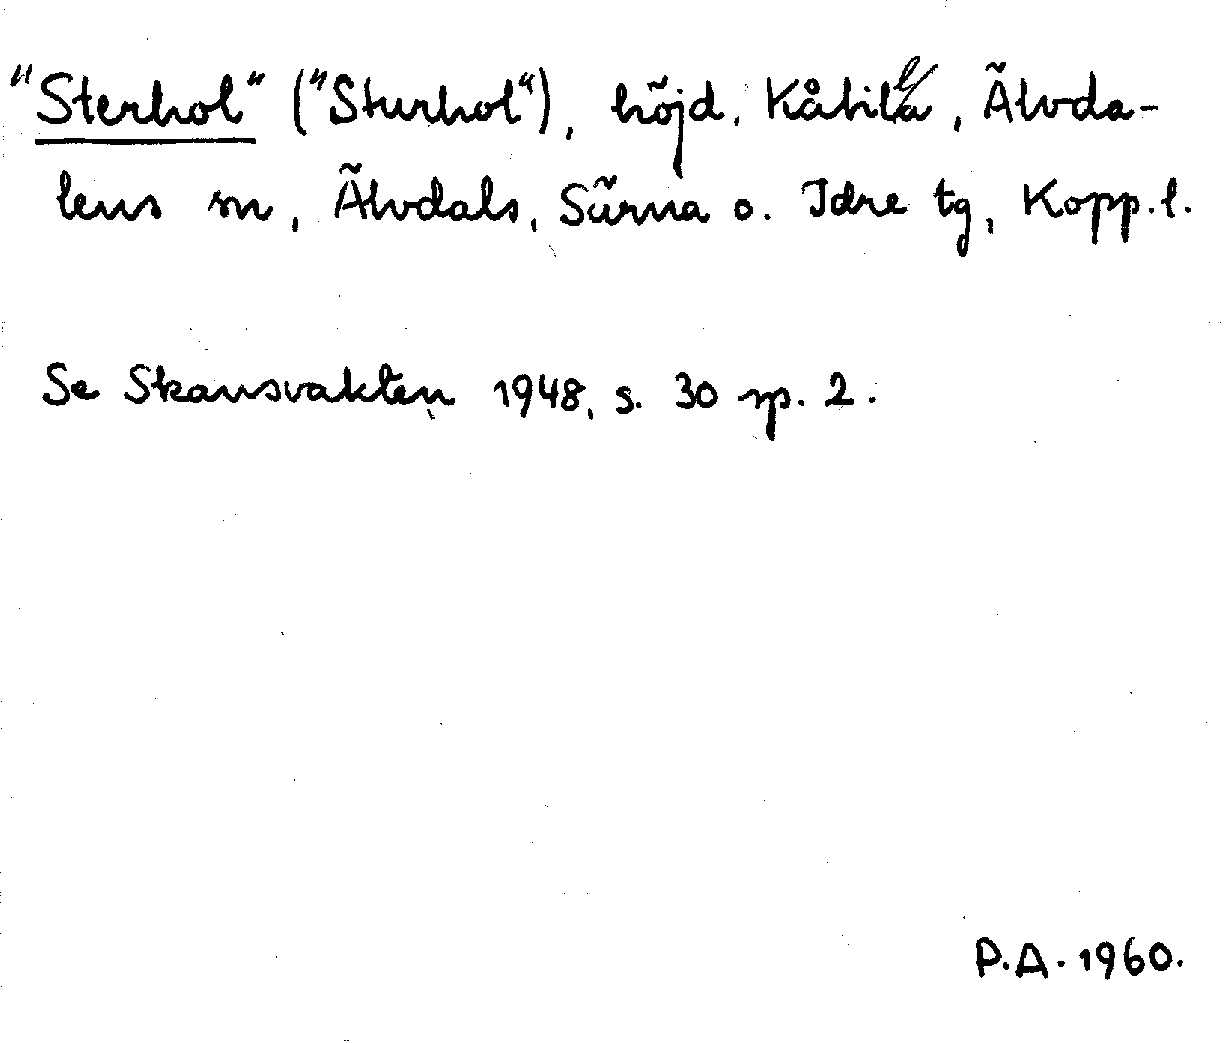 "Sterhol" ("Sturhol"), höjd, Kåtilla, Älvda-
lens sn, Älvdals, Särna o. Idre tg, Kopp. l.
Se Skansvakten 1948, s. 30 sp. 2.
P.A. 1960.